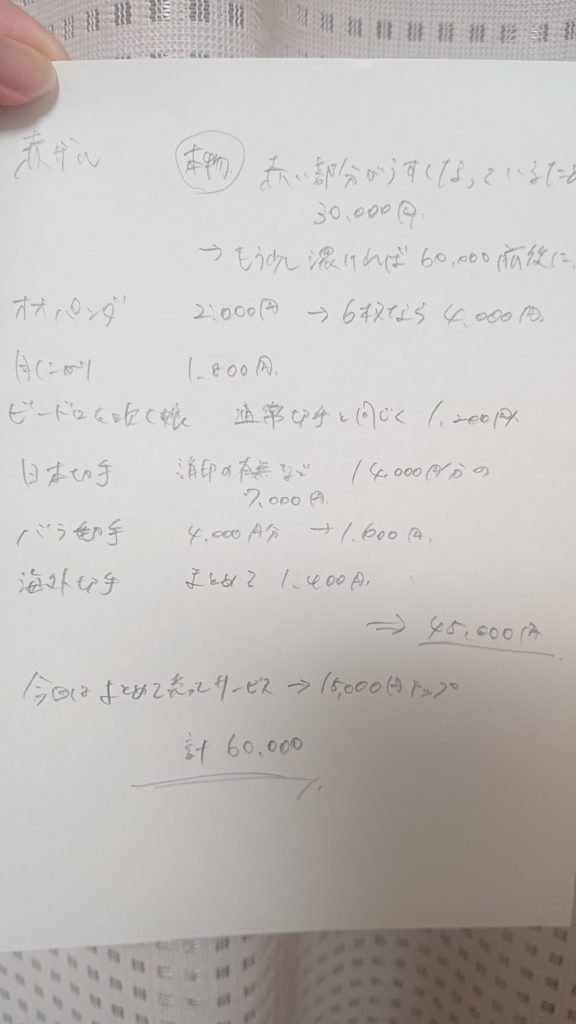 赤ザル 本物 赤い部分がうすくなっているため
30.000円
→ もう少し濃ければ 60.000 前後に
オオパンダ 2.000円 → 6枚なら 4.000円
1.800円
ビードロを吹く娘 通常切手と同じく 1.200円
日本切手 消印の有無など 14.000円分の
7.000円
バラ切手 4.000円分 → 1.600円
海外切手 まとめて 1.400円
⇒ 45.000円
今回はまとめて売ってサービス → 15,000円アップ
計 60.000